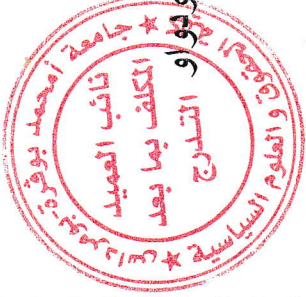 جامعة أمحمد بوقرة-بومرداس
الحقوق و العلوم السياسية
نائب العميد
المكلف بما بعد
التدرج